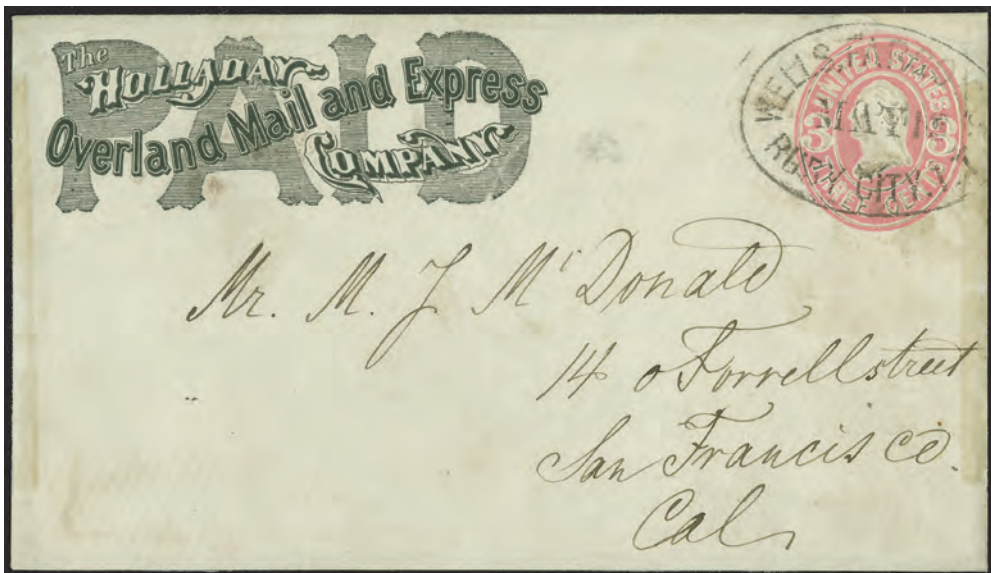 The
HOLLADAY
Overland Mail and Express
COMPANY
PAID
WELLS
RUBY CITY
UNITED STATES
3 3
THREE CENTS
Mr. M. J McDonald
14 o Forrell street
San Francis co.
Cal